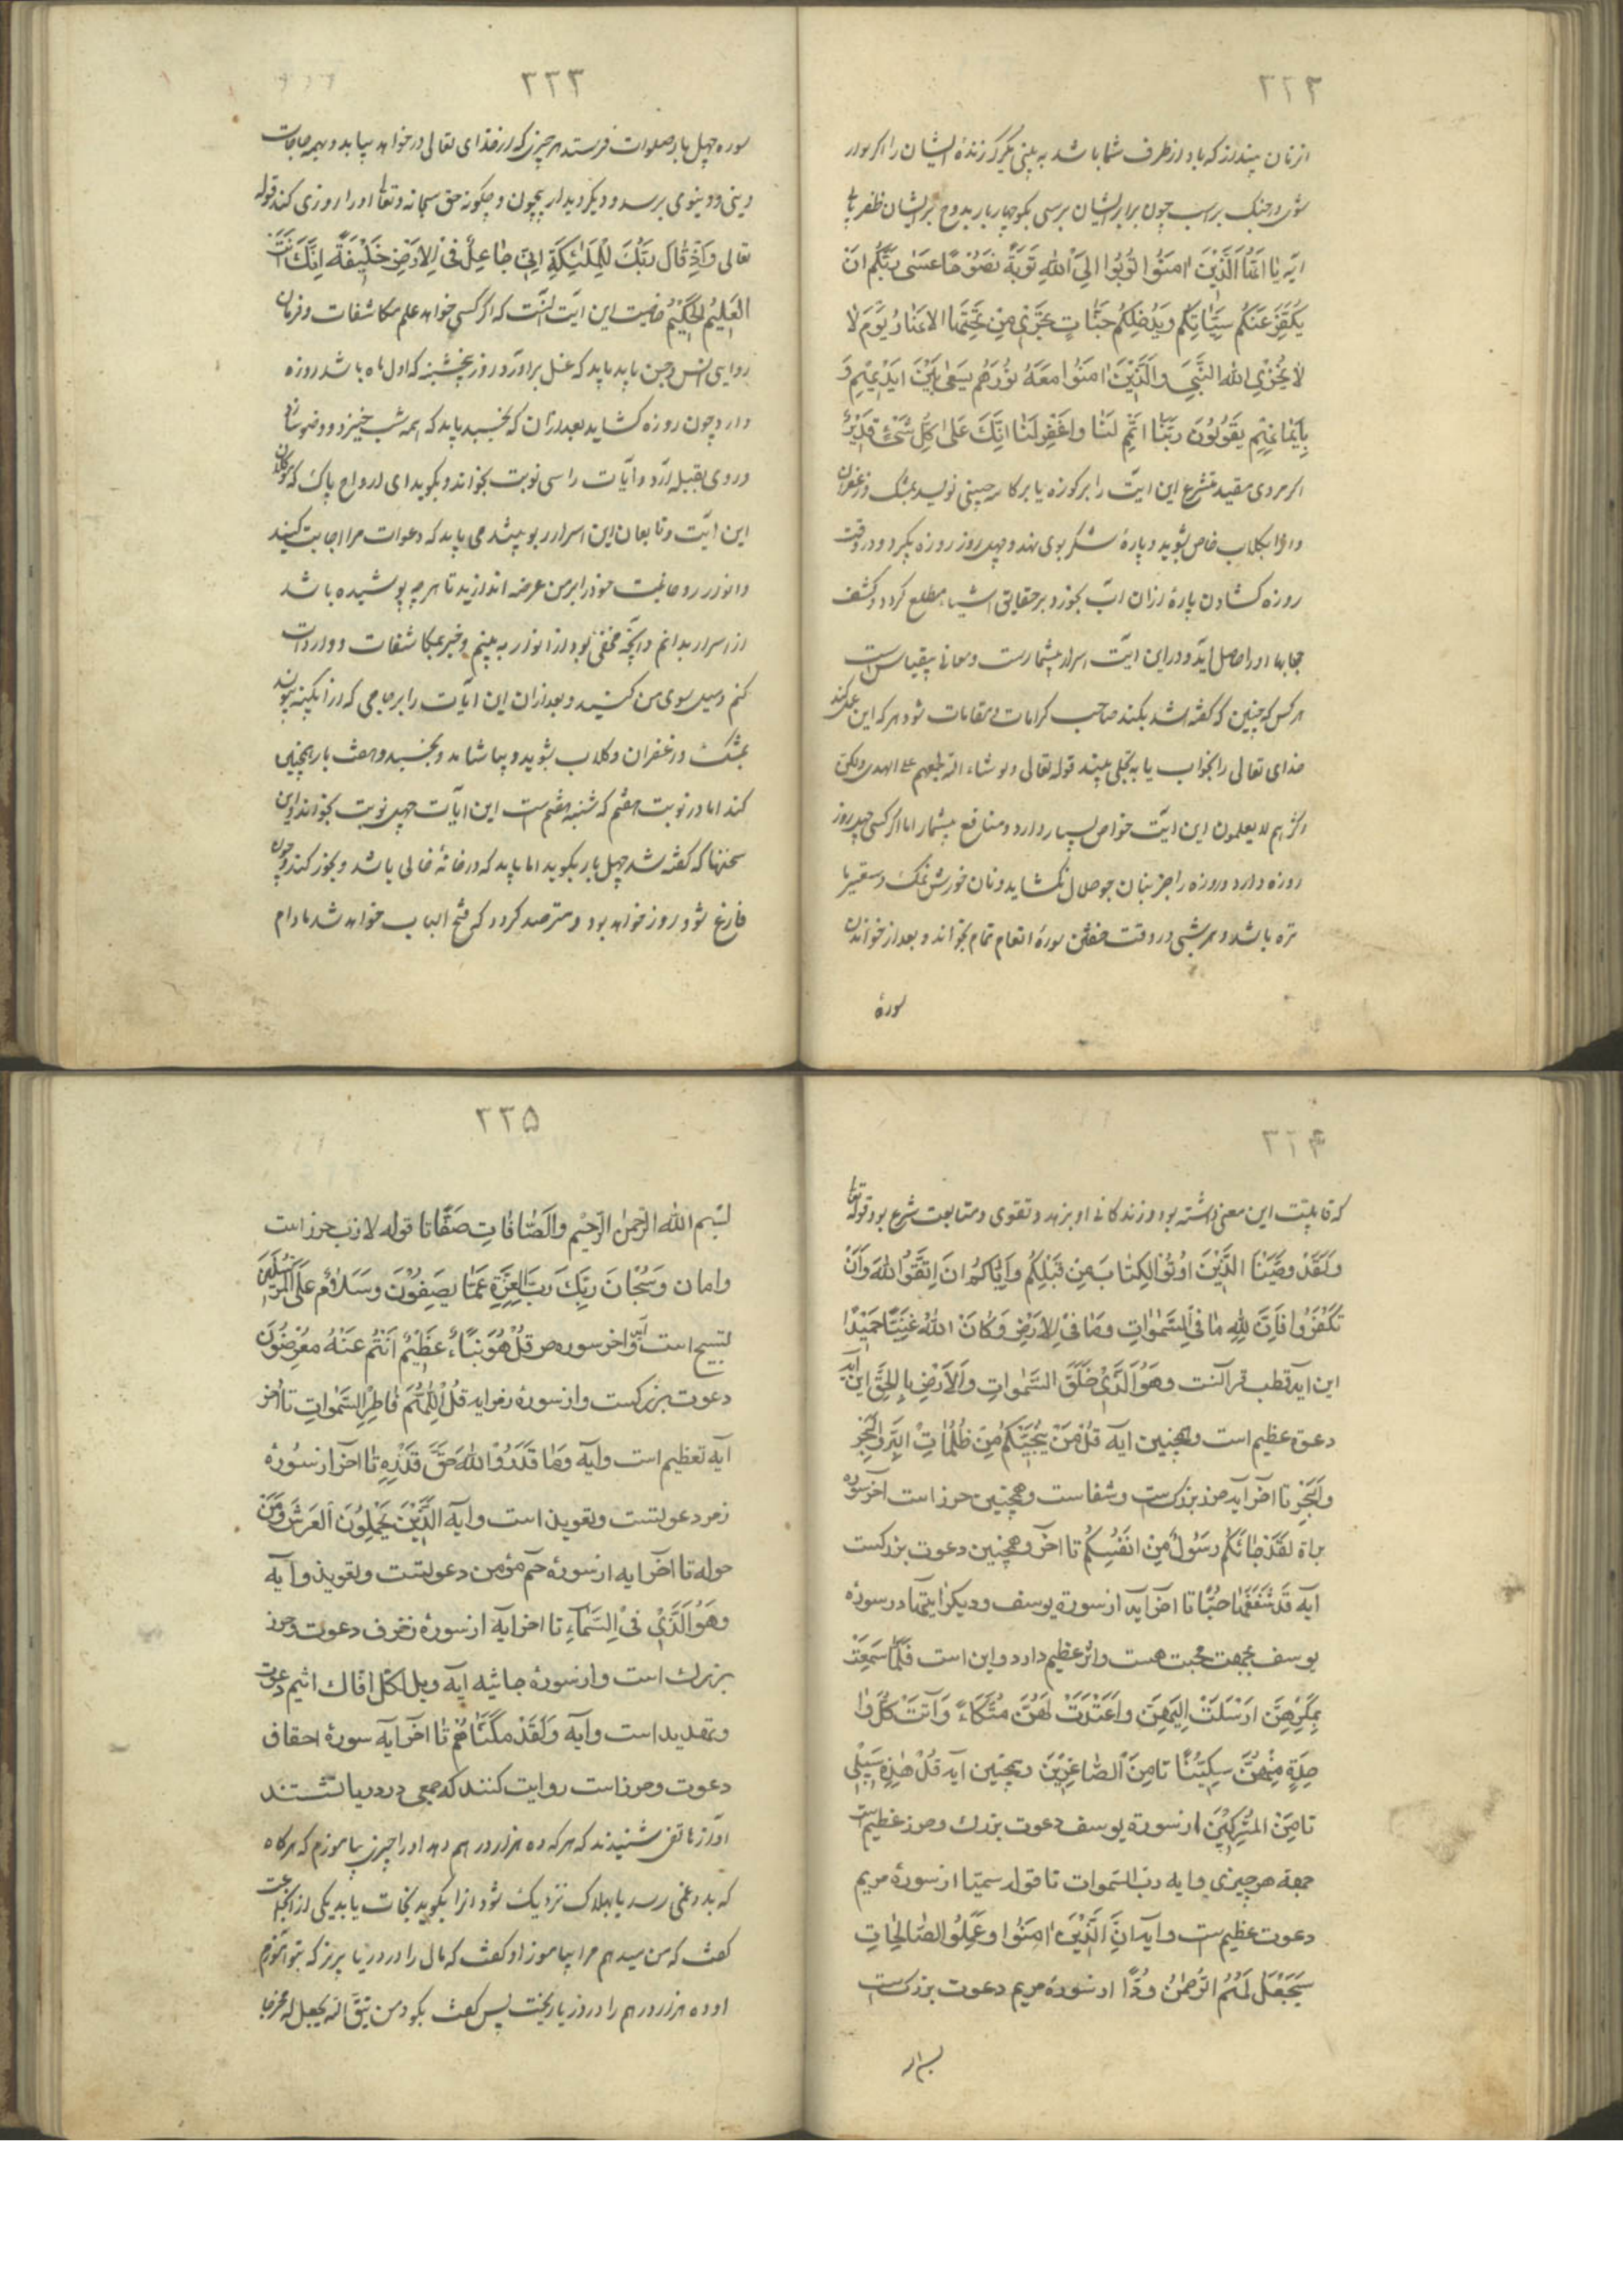 ۳۲۳
از نان پندارند که باد از طرف شما باشد به بینی یکرکرزنده ایشان را اکر سوار
شوی و در جنک براسب چون برابر ایشان برسی بکو چهار بار بدوح بر ایشان ظفر یابی
ایه یا ایها الذین امنوا توبوا الی الله توبة نصوحا عسی ربکم ان
یکفر عنکم سیئاتکم ویدخلکم جنات تجری من تحتها الانهار یوم لا
لا یخزی الله النبی والذین امنوا معه نورهم یسعی بین ایدیهم و
بایمانهم یقولون ربنا اتمم لنا نورنا واغفرلنا انک علی کل شئ قدیر
اکر مردی مقید متشرع این ایت را بر کوزه یا بر کاسه چینی نویسد بمشک وزعفران
وانرا بکلاب خاص بشوید و پارهٔ شکر بوی نهد و چهل روز روزه بکیرد و در وقت
روزه کشادن پارهٔ ازان اب بخورد بر حقایق اشیاء مطلع کردد وکشف
حجابها اورا حاصل اید و در این ایت اسرار بیشمارست ومعانی بیقیاس است
هر کس که چنین که کفته شد بکند صاحب کرامات و مقامات شود هر که این عمل کند
خدای تعالی را بخواب یا به تجلی بیند قوله تعالی ولو شاء الله لجمعهم علی الهدی ولکن
اکثرهم لا یعلمون این ایت خواص بسیار دارد و منافع بیشمار اما اکر کسی چهل روز
روزه دارد و روزه را جز بنان جو حلال نکشاید و نان خورش نمک و سقیر یا
تره باشد و هر شبی در وقت خفتن سورهٔ انعام تمام بخواند و بعد از خواندن
سورهٔ
۳۳۳
سوره چهل بار صلوات فرستد هر چیزی که از خدای تعالی درخواهد بیابد و بهمه حاجات
دینی و دنیوی برسد و دیکر دیدار بیچون و چکونه حق سبحانه وتعالی اورا روزی کند قوله
تعالی واذ قال ربک للملئکة انی جاعل فی الارض خلیفة انک انت
العلیم الحکیم خاصیت این ایت انست که اکر کسی خواهد علم مکاشفات و فرمان
روایی انس و جن یابد باید که غسل براورد و روز پنجشنبه که اول ماه باشد روزه
دارد چون روزه کشاید بعد ازان که بخسبد باید که نیمه شب خیزد و وضو سازد
و روی بقبله ارد و ایات را سی نوبت بخواند و بکوید ای ارواح پاک که موکلان
این ایت و تابعان این اسرار بوبیتد می باید که دعوات مرا اجابت کنید
وانوار روحانیت خود را بر من عرضه اندازید تا هر چه پوشیده باشد
از اسرار بدانم وانچه مخفی بود از انوار به بینم وخبر بمکاشفات وواردات
کنم ومیل سوی من کنید و بعد ازان این ایات را بر جامی که از ابکینه بود
بمشک و زعفران و کلاب بشوید و بیاشامد و بخسبد و هفت بار همچنین
کند اما در نوبت هفتم که شنبه هفتم است این ایات چهل نوبت بخواند واین
سخنها که کفته شد چهل بار بکوید اما باید که در خانهٔ خالی باشد و بخور کند و چون
فارغ شود روز خواهد بود و مترصد کردد که فتح الباب خواهد شد مادام
۳۲۴
که قابلیت این معنی داشته بود و زندکانی او بزهد و تقوی و متابعت شرع بود قوله تعالی
ولقد وصینا الذین اوتوا الکتاب من قبلکم وایاکم ان اتقوا الله وان
تکفروا فان لله ما فی السموات وما فی الارض وکان الله غنیا حمیدا
این ایه قطب قرآنست وهو الذی خلق السموات والارض بالحق این ایه
دعوة عظیم است وهمچنین ایه قل من ینجیکم من ظلمات البر والبحر
والبحر تا اخر آیه حرز بزرکست و شفاست وهمچنین حرز است اخر سوره
براة لقد جائکم رسول من انفسکم تا اخر وهمچنین دعوت بزرکست
ایه قد شغفها حبا تا اخر آیه از سورة یوسف و دیکر ایتها در سورهٔ
یوسف بجهت محبت هست واثر عظیم دارد واین است فلما سمعت
بمکرهن ارسلت الیهن واعتدت لهن متکاء وآتت کل وا
حدة منهن سکینا تا من الصاغرین وهمچنین آیه قل هذه سبیلی
تا من المشرکین از سورة یوسف دعوت بزرک وحرز عظیم است
جهة هر چیزی وایه رب السموات تا قوله سمیا از سورهٔ مریم
دعوت عظیم ست وایه ان الذین امنوا وعملوا الصالحات
سیجعل لهم الرحمن ودا از سورهٔ مریم دعوت بزرکست
۳۳۵
بسم الله الرحمن الرحیم والصافات صفا تا قوله لازب حرز است
وامان وسبحان ربک رب العزة عما یصفون وسلام علی المرسلین
تسبیح است وآیه اخر سوره ص قل هو نباء عظیم انتم عنه معرضون
دعوت بزرکست واز سورهٔ زمر ایه قل اللهم فاطر السموات تا اخر
آیه تعظیم است وآیه وما قدروا الله حق قدره تا اخر از سورهٔ
زمر دعوتست وتعویذ است وآیه الذین یحملون العرش ومن
حوله تا اخر ایه از سورهٔ حم مؤمن دعوتست وتعویذ وآیه
وهو الذی فی السماء تا اخر ایه از سورهٔ زخرف دعوت وحرز
بزرک است واز سورهٔ جاثیه ایه ویل لکل افاک اثیم دعوت
وتهدید است وآیه ولقد مکناهم تا اخر ایه سورهٔ احقاف
دعوت وحرز است روایت کنند که جمعی در دریا نشستند
اواز هاتفی شنیدند که هر که ده هزار درهم دهد اورا چیزی بیاموزم که هر کاه
که بدو غمی رسد یا بهلاک نزدیک شود انرا بکوید نجات یابد یکی از جماعت
کفت که من میدهم مرا بیاموز او کفت که مال را در دریا بریز که بتو اموزم
او ده هزار درهم را در دریا ریخت پس کفت بکو ومن یتق الله یجعل له مخرجا